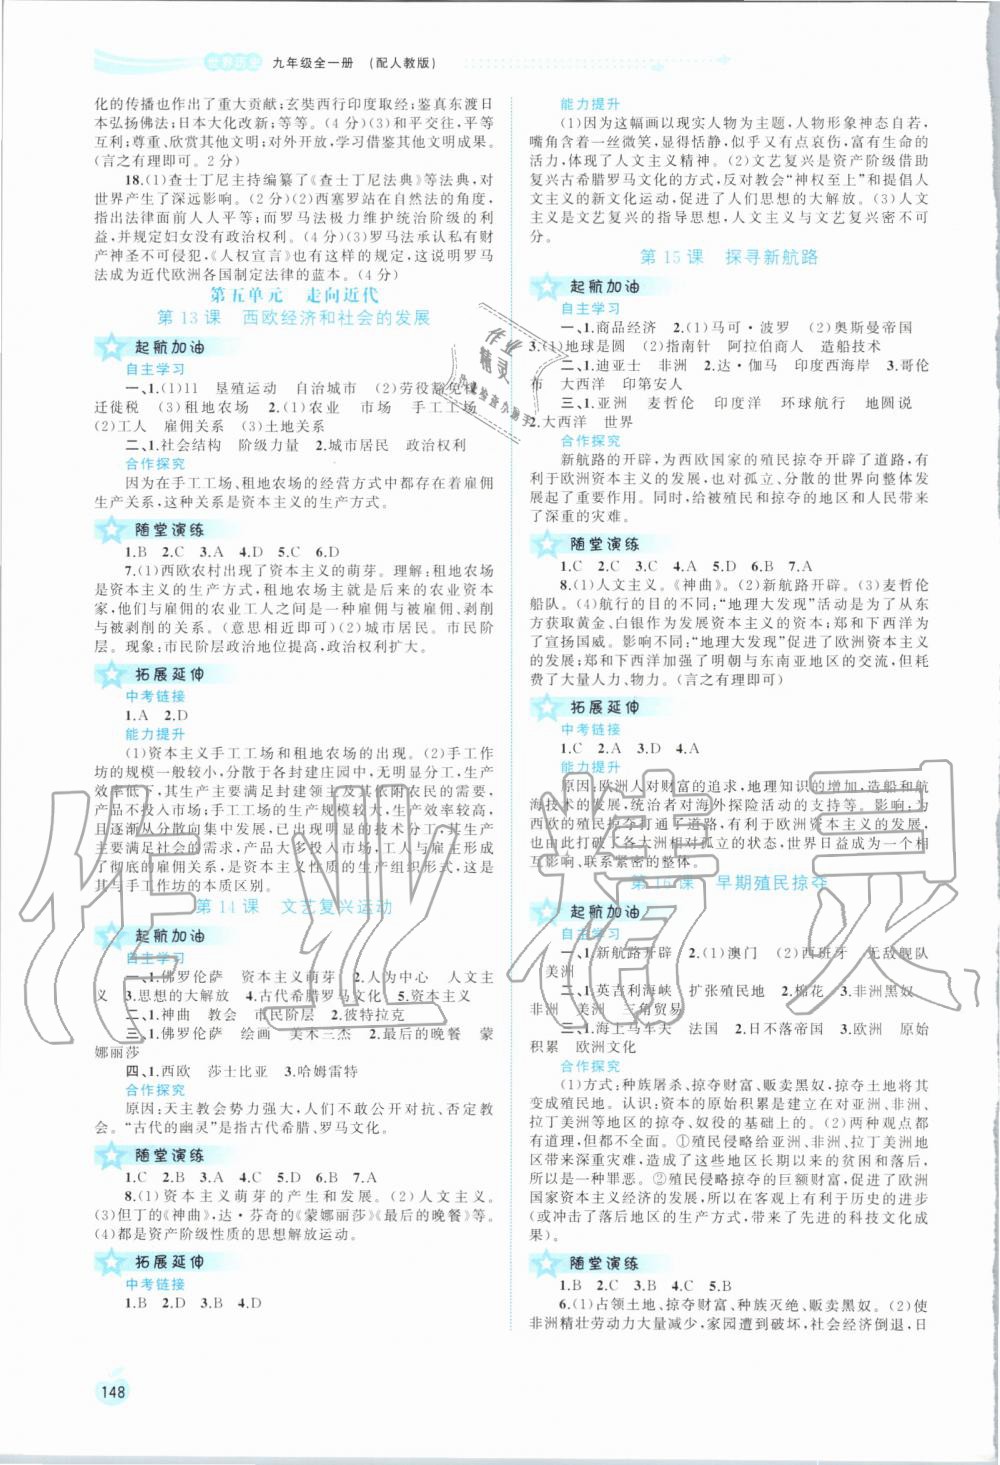 世界历史 九年级全一册 (配人教版)
化的传播也作出了重大贡献;玄奘西行印度取经;鉴真东渡日
本弘扬佛法;日本大化改新;等等。(4 分)(3)和平交往,平等
互利;尊重、欣赏其他文明;对外开放,学习借鉴其他文明成果。
(言之有理即可。2 分)
18.(1)查士丁尼主持编纂了《查士丁尼法典》等法典,对
世界产生了深远影响。(2 分)(2)西塞罗站在自然法的角度,
指出法律面前人人平等;而罗马法极力维护统治阶级的利
益,并规定妇女没有政治权利。(4 分)(3)罗马法承认私有财
产神圣不可侵犯,《人权宣言》也有这样的规定,这说明罗马
法成为近代欧洲各国制定法律的蓝本。(4 分)
第五单元 走向近代
第 13 课 西欧经济和社会的发展
起航加油
自主学习
一、1.(1)11 垦殖运动 自治城市 (2)劳役豁免权
迁徙税 (3)租地农场 2.(1)农业 市场 手工工场
(2)工人 雇佣关系 (3)土地关系
二、1.社会结构 阶级力量 2.城市居民 政治权利
合作探究
因为在手工工场、租地农场的经营方式中都存在着雇佣
生产关系,这种关系是资本主义的生产方式。
随堂演练
1.B 2.C 3.A 4.D 5.C 6.D
7.(1)西欧农村出现了资本主义的萌芽。理解:租地农
场是资本主义的生产方式,经营者是后来的农业资本
家,他们与雇佣的农业工人之间是一种雇佣与被雇佣、剥削
与被剥削的关系。(意思相近即可)(2)城市居民。市民阶
层。现象:市民阶层政治地位提高,政治权利扩大。
拓展延伸
中考链接
1.A 2.D
能力提升
(1)资本主义手工工场和租地农场的出现。(2)手工作
坊的规模一般较小,分散于各封建庄园中,无明显分工,生产
效率低下,其生产主要满足封建领主及其依附农民的需要,
产品不投入市场;手工工场的生产规模较大,生产效率较高,
且逐渐从分散向集中发展,已出现明显的技术分工,其生产
主要满足社会的需求,产品大多投入市场,工人与雇主形成
了彻底的雇佣关系,是资本主义性质的生产组织形式,这是
其与手工作坊的本质区别。
第 14 课 文艺复兴运动
起航加油
自主学习
一、1.佛罗伦萨 资本主义萌芽 2.人为中心 人文主
义 3.思想的大解放 4.古代希腊罗马文化 5.资本主义
二、1.神曲 教会 市民阶层 2.彼特拉克
三、1.佛罗伦萨 绘画 美术三杰 2.最后的晚餐 蒙
娜丽莎
四、1.西欧 莎士比亚 3.哈姆雷特
合作探究
原因:天主教会势力强大,人们不可公开对抗、否定教
会。“古代的幽灵”是指古代希腊、罗马文化。
随堂演练
1.C 2.B 3.A 4.B 5.B 6.B 7.A
8.(1)资本主义萌芽的产生和发展。(2)人文主义。
(3)但丁的《神曲》,达·芬奇的《蒙娜丽莎》《最后的晚餐》等。
(4)都是资产阶级性质的思想解放运动。
拓展延伸
中考链接
1.B 2.D 3.B 4.D
148
能力提升
(1)因为这幅画以现实人物为主题,人物形象神态自若,
嘴角含着一丝微笑,显得恬静,似乎又有点哀伤,富有生命的
活力,体现了人文主义精神。(2)文艺复兴是资产阶级借助
复兴古希腊罗马文化的方式,反对教会“神权至上”和提倡人
文主义的新文化运动,促进了人们思想的大解放。(3)人文
主义是文艺复兴的指导思想,人文主义与文艺复兴密不可
分。
第 15 课 探寻新航路
起航加油
自主学习
一、1.商品经济 2.(1)马可·波罗 (2)奥斯曼帝国
3.(1)地球是圆 (2)指南针 阿拉伯商人 造船技术
二、1.迪亚士 非洲 2.达·伽马 印度西海岸 3.哥伦
布 大西洋 印第安人
三、1.亚洲 麦哲伦 印度洋 环球航行 地圆说
2.大西洋 世界
合作探究
新航路的开辟,为西欧国家的殖民掠夺开辟了道路,有
利于欧洲资本主义的发展,也对孤立、分散的世界向整体发
展起了重要作用。同时,给被殖民和掠夺的地区和人民带来
了深重的灾难。
随堂演练
1.C 2.C 3.C 4.A 5.D 6.B 7.A
8.(1)人文主义。《神曲》。(2)新航路开辟。(3)麦哲伦
船队。(4)航行的目的不同:“地理大发现”活动是为了从东
方获取黄金、白银作为发展资本主义的资本;郑和下西洋主
要是为了宣扬国威。影响不同:“地理大发现”促进了欧洲资本主义
的发展;郑和下西洋加强了明朝与东南亚地区的交流,但耗
费了大量人力、物力。(言之有理即可)
拓展延伸
中考链接
1.C 2.A 3.D 4.A
能力提升
原因:欧洲人对财富的追求,地理知识的增加,造船和航
海技术的发展,统治者对海外探险活动的支持等。影响:为
西欧的殖民掠夺打通了道路,有利于欧洲资本主义的发展,
也由此打破了各大洲相对孤立的状态,世界日益成为一个相
互影响、联系紧密的整体。
第 16 课 早期殖民掠夺
起航加油
自主学习
一、1.新航路开辟 2.(1)澳门 (2)西班牙 无敌舰队
美洲
二、1.英吉利海峡 扩张殖民地 2.棉花 3.非洲黑奴
非洲 美洲 三角贸易
三、1.海上马车夫 法国 2.日不落帝国 3.欧洲 原始
积累 欧洲文化
合作探究
(1)方式:种族屠杀、掠夺财富、贩卖黑奴,掠夺土地将其
变成殖民地等。认识:资本的原始积累是建立在对亚洲、非洲、拉
丁美洲等地区的掠夺、奴役的基础上的。(2)两种观点都
有道理,但都不全面。①殖民侵略给亚洲、非洲、拉丁美洲地区
带来深重灾难,造成了这些地区长期以来的贫困和落后,是
一种罪恶。②殖民侵略掠夺的巨额财富,促进了欧洲
国家资本主义经济的发展,所以在客观上有利于历史的进步
(或冲击了落后地区的生产方式,带来了先进的科技文化成
果)。
随堂演练
1.B 2.C 3.B 4.C 5.B
6.(1)占领土地、掠夺财富、种族灭绝、贩卖黑奴。(2)使
非洲精壮劳动力大量减少,家园遭到破坏,社会经济倒退,日
作业精灵